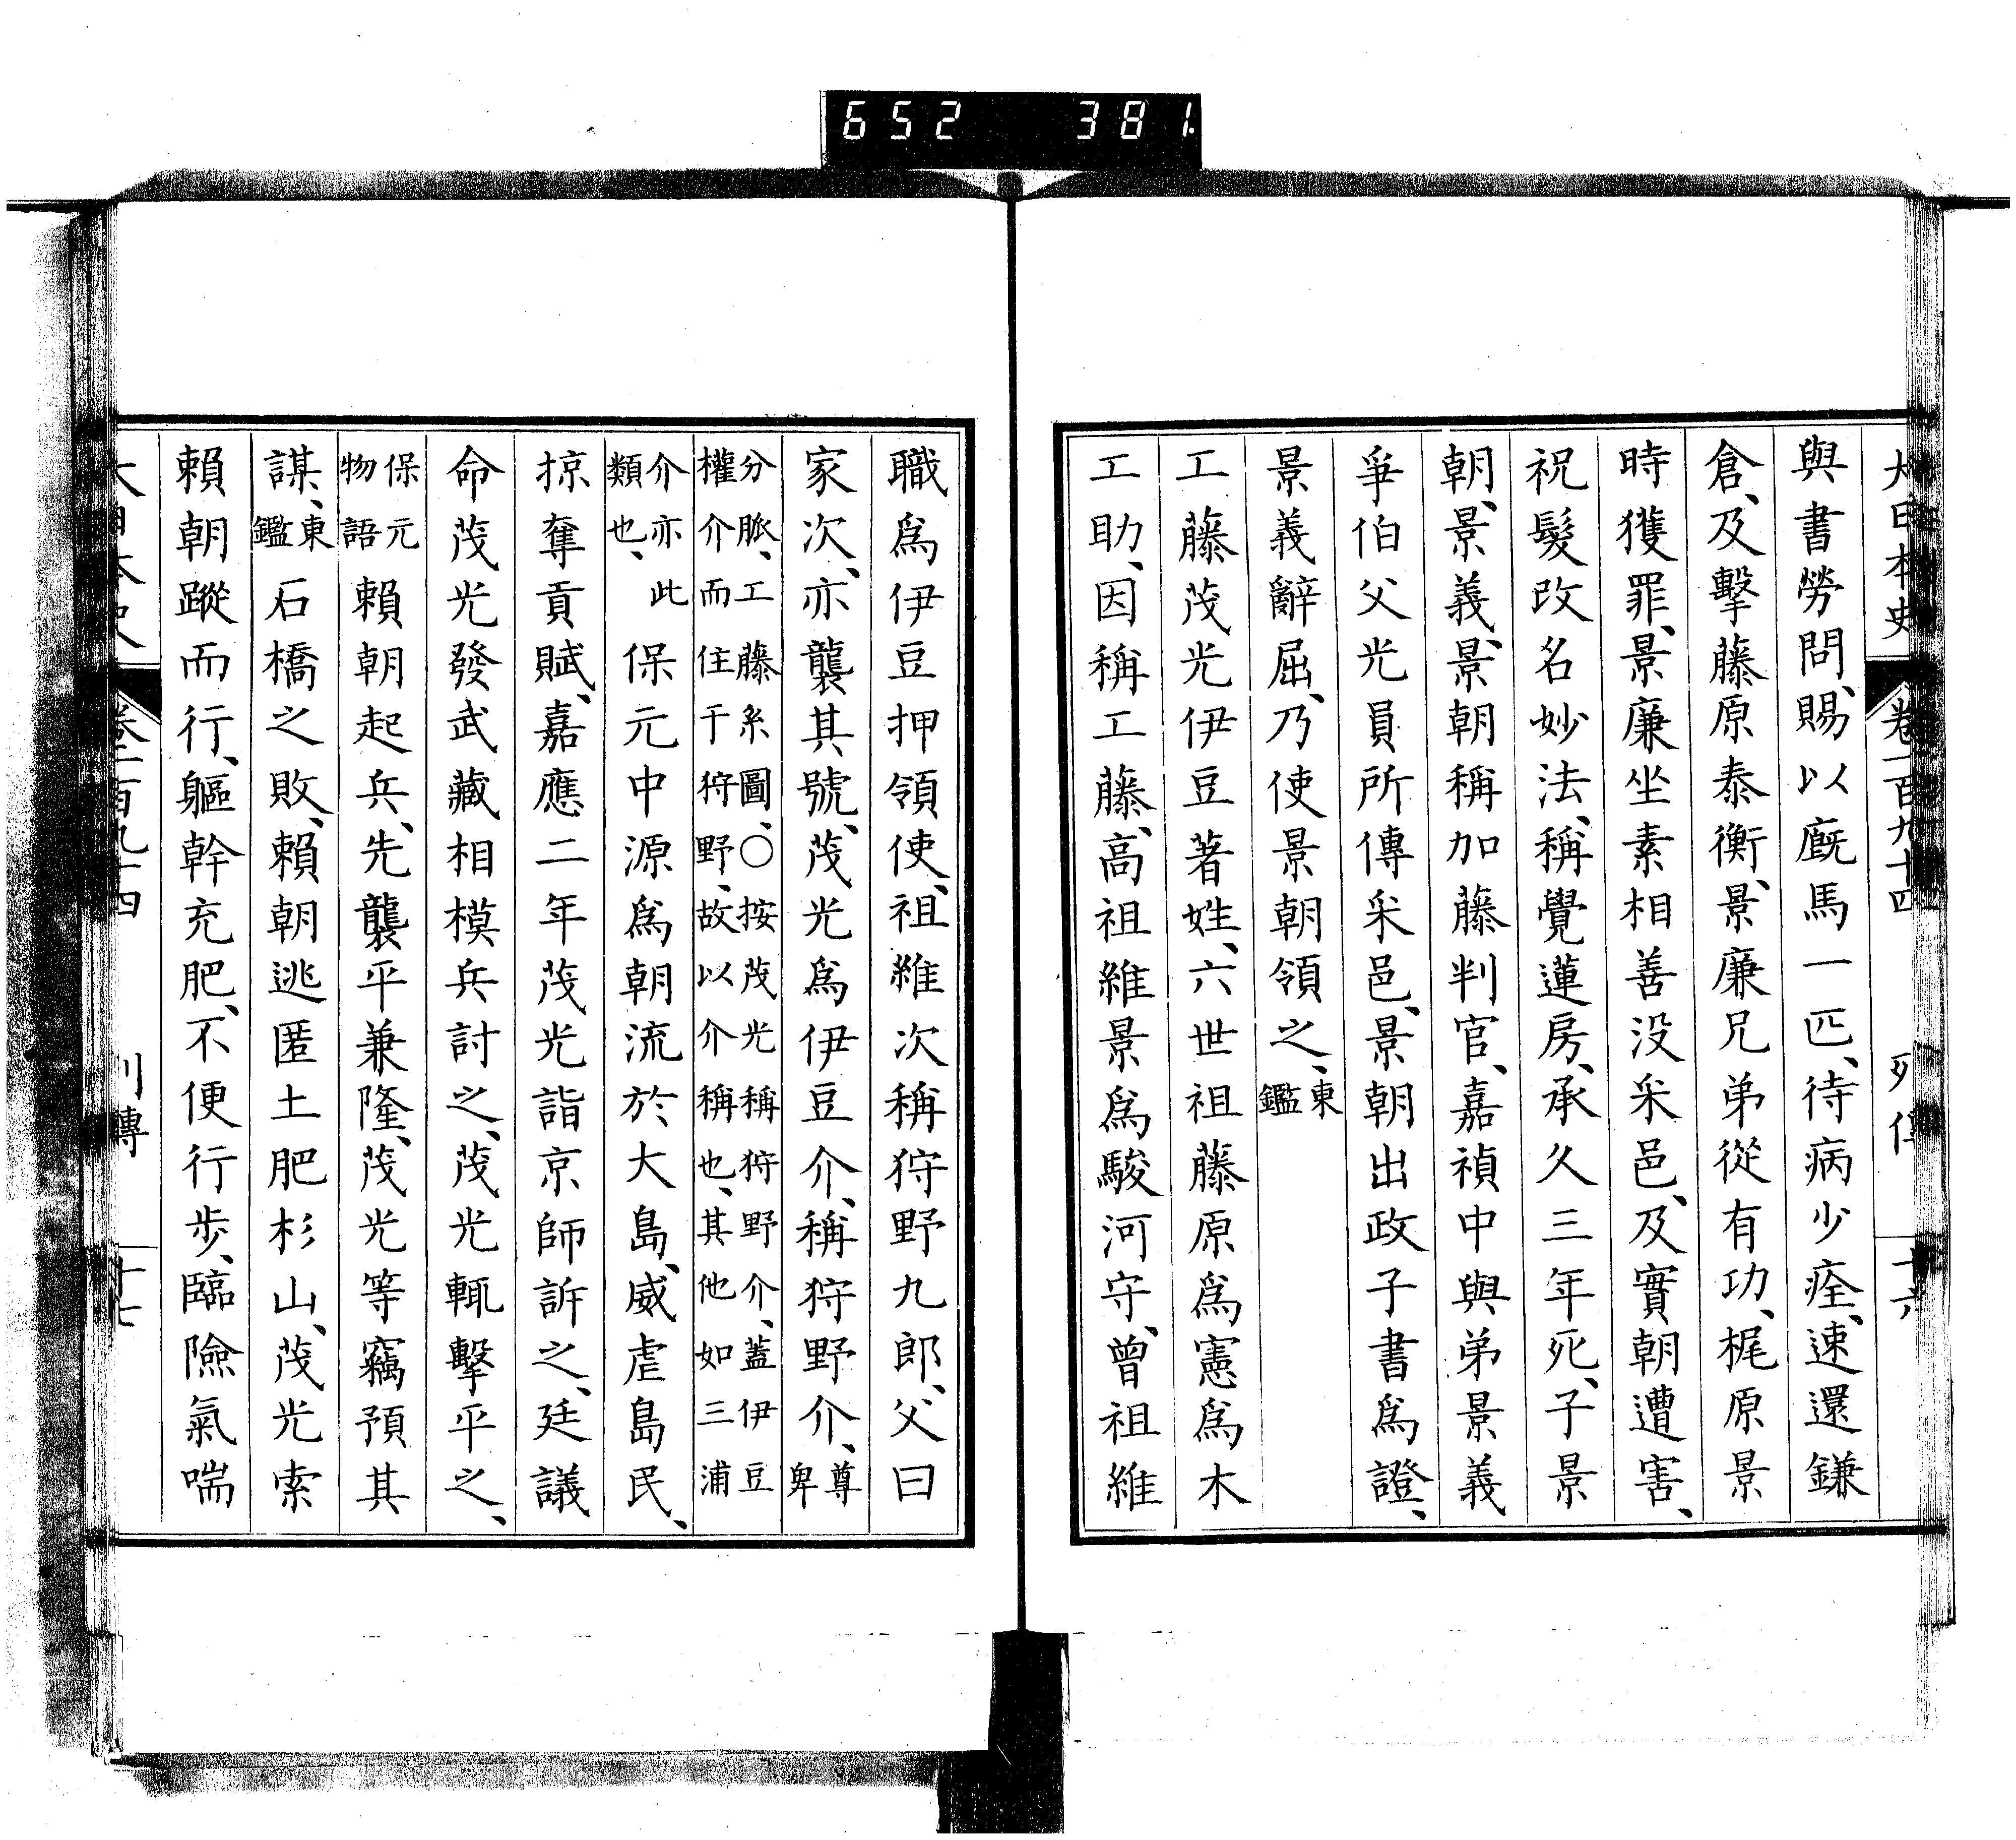 652 381
大日本史 卷一百九十四 列傳 十六
與書勞問、賜以廐馬一匹、待病少痊、速還鎌
倉、及擊藤原泰衡、景廉兄弟從有功、梶原景
時獲罪、景廉坐素相善没釆邑、及實朝遭害、
祝髮改名妙法、稱覺蓮房、承久三年死、子景
朝、景義、景朝稱加藤判官、嘉禎中與弟景義
爭伯父光員所傳釆邑、景朝出政子書爲證、
景義辭屈、乃使景朝領之、東鑑
工藤茂光伊豆著姓、六世祖藤原爲憲爲木
工助、因稱工藤、高祖維景爲駿河守、曾祖維
職爲伊豆押領使、祖維次稱狩野九郎、父曰
家次、亦襲其號、茂光爲伊豆介、稱狩野介、尊卑
分脈、工藤系圖、〇按茂光稱狩野介、蓋伊豆
權介而住于狩野、故以介稱也、其他如三浦
介亦此類也、保元中源爲朝流於大島、威虐島民、
掠奪貢賦、嘉應二年茂光詣京師訴之、廷議
命茂光發武藏相模兵討之、茂光輒擊平之、
保元物語賴朝起兵、先襲平兼隆、茂光等竊預其
謀、東鑑石橋之敗、賴朝逃匿土肥杉山、茂光索
賴朝蹤而行、軀幹充肥、不便行步、臨險氣喘
大日本史 卷一百九十四 列傳 十七